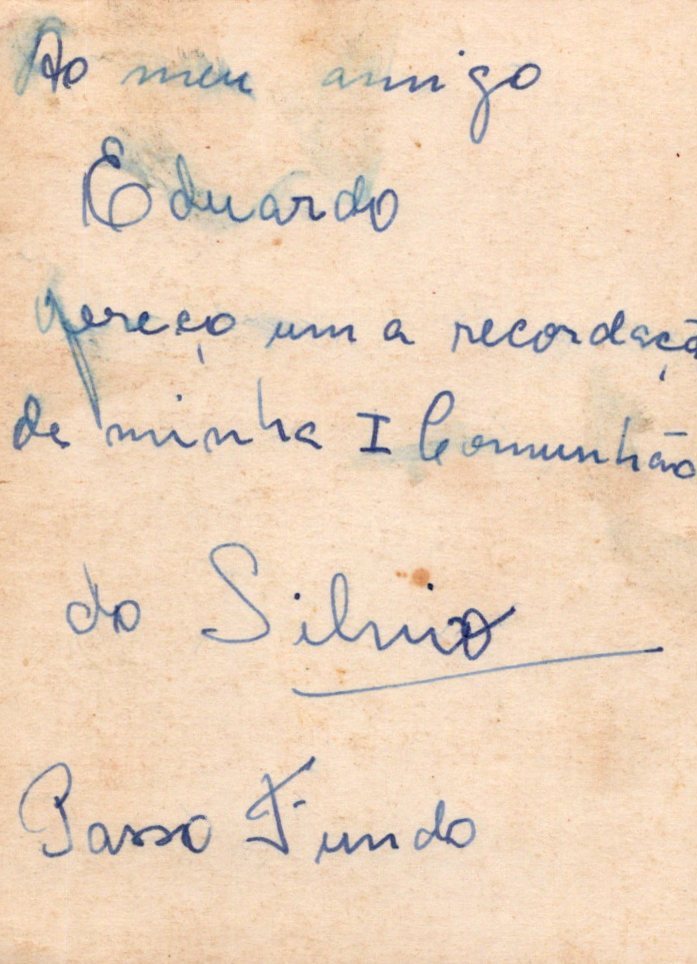 Ao meu amigo
Eduardo
ofereço uma recordação
de minha I Comunhão
do Silvio
Passo Fundo